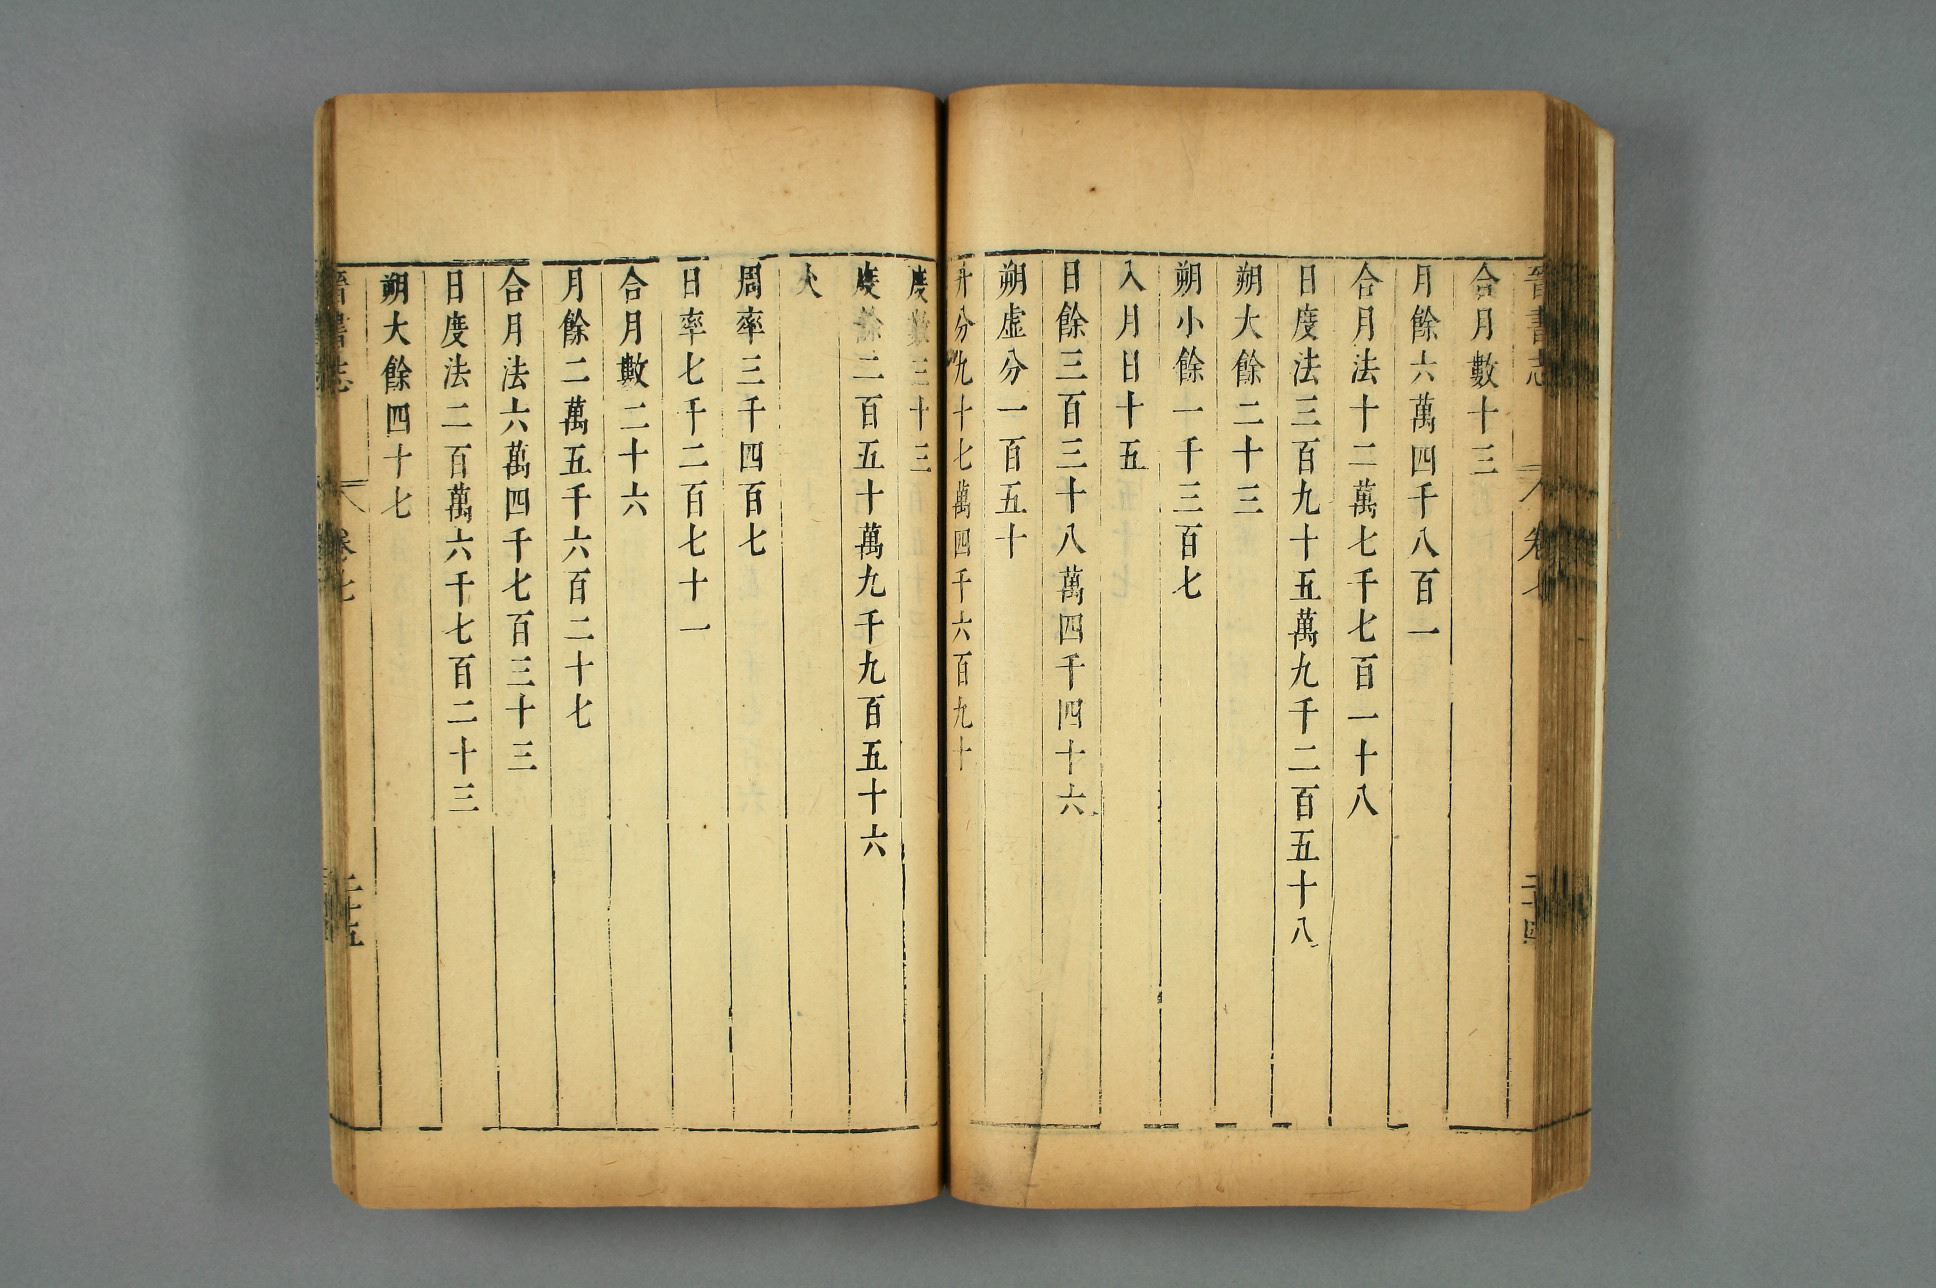 合月數十三
月餘六萬四千八百一
合月法十二萬七千七百一十八
日度法三百九十五萬九千二百五十八
朔大餘二十三
朔小餘一千三百七
入月日十五
日餘三百三十八萬四千四十六
朔虛分一百五十
升分九十七萬四千六百九十
度數三十三
度餘二百五十萬九千九百五十六
火
周率三千四百七
日率七千二百七十一
合月數二十六
月餘二萬五千六百二十七
合月法六萬四千七百三十三
日度法二百萬六千七百二十三
朔大餘四十七
晉書志
卷七
二十五
晉書志
卷七
二十四